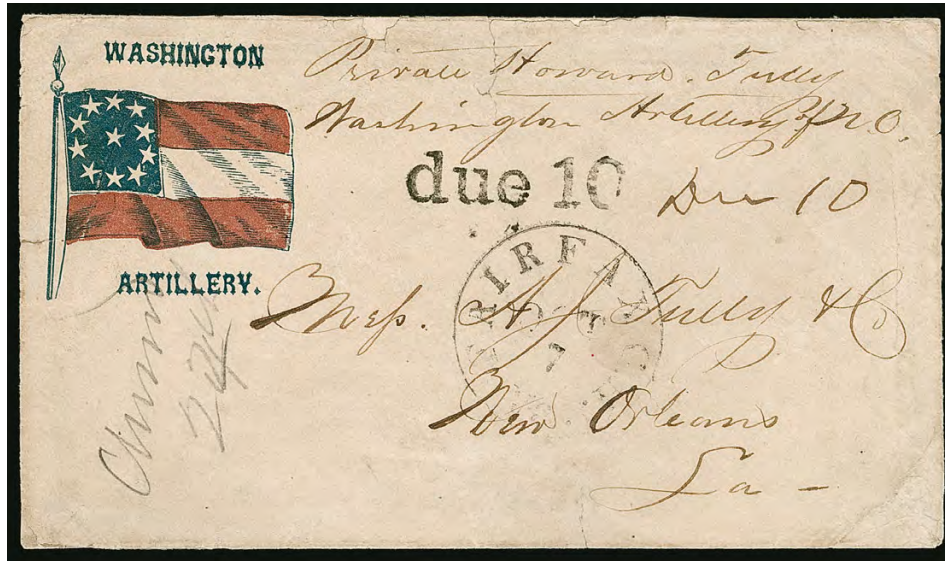 WASHINGTON
ARTILLERY.
Private Howard. Tully
Washington Artillery of N.O.
due 10
Due 10
FAIRFAX C.
7
Mess. A. J. Tully & Co
New Orleans
La -
24